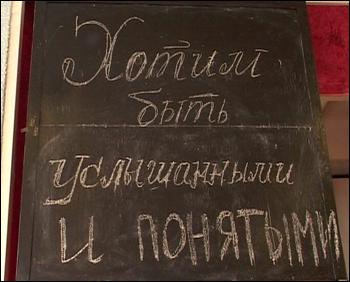 Хотим
быть
услышанными
и понятыми